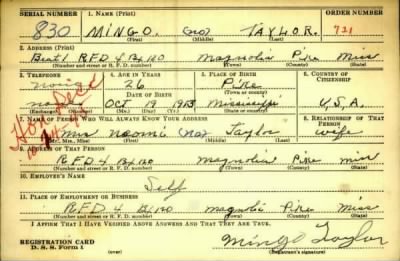 SERIAL NUMBER 1. NAME (Print) ORDER NUMBER
830 MINGO. (no) TAYLOR. 721
(First) (Middle) (Last)
2. ADDRESS (Print)
Beat 1 R.F.D 4 Bx 120 Magnolia Pike Miss
(Number and street or R. F. D. number) (Town) (County) (State)
3. TELEPHONE 4. AGE IN YEARS 5. PLACE OF BIRTH 6. COUNTRY OF CITIZENSHIP
none 26 Pike
DATE OF BIRTH (Town or county)
Oct 19 1913 Mississippi U.S.A.
(Exchange) (Number) (Mo.) (Day) (Yr.) (State or country)
7. NAME OF PERSON WHO WILL ALWAYS KNOW YOUR ADDRESS 8. RELATIONSHIP OF THAT PERSON
Mrs Naomi (no) Taylor wife
(Mr., Mrs., Miss) (First) (Middle) (Last)
9. ADDRESS OF THAT PERSON
R.F.D 4 Bx 120 Magnolia Pike miss
(Number and street or R. F. D. number) (Town) (County) (State)
10. EMPLOYER'S NAME
Self
11. PLACE OF EMPLOYMENT OR BUSINESS
R.F.D 4 Bx 120 Magnolia Pike Miss
(Number and street or R. F. D. number) (Town) (County) (State)
I AFFIRM THAT I HAVE VERIFIED ABOVE ANSWERS AND THAT THEY ARE TRUE.
REGISTRATION CARD
D. S. S. Form 1 (over) Mingo Taylor
(Registrant's signature)